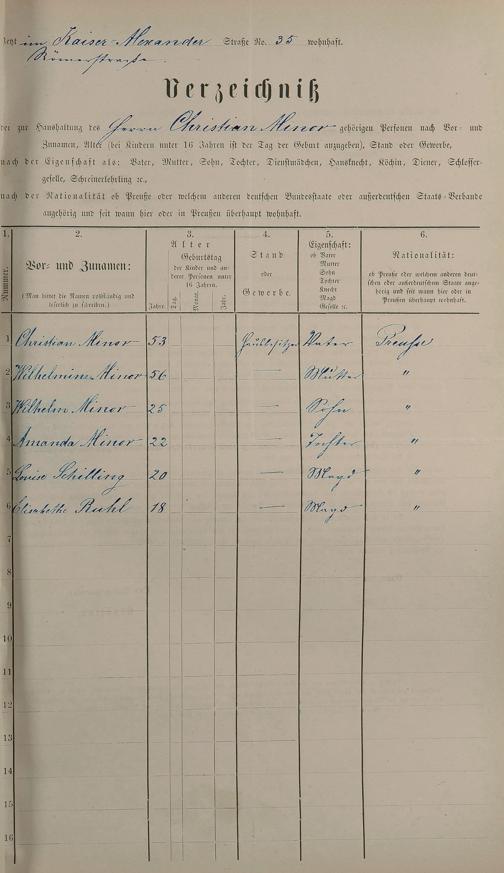 Jetzt im Kaiser-Alexander Straße No. 35 wohnhaft.
Römerstraße.
Verzeichniß
der zur Haushaltung des Herrn Christian Minor gehörigen Personen nach Vor- und
Zunamen, Alter (bei Kindern unter 16 Jahren ist der Tag der Geburt anzugeben), Stand oder Gewerbe,
nach der Eigenschaft als: Vater, Mutter, Sohn, Tochter, Dienstmädchen, Hausknecht, Köchin, Diener, Schlosser-
geselle, Schreinerlehrling ꝛc.,
nach der Nationalität ob Preuße oder welchem anderen deutschen Bundesstaate oder außerdeutschen Staats-Verbande
angehörig und seit wann hier oder in Preußen überhaupt wohnhaft.
1. 2. 3. 4. 5. 6.
Nummer.
Vor- und Zunamen:
(Man bittet die Namen vollständig und
leserlich zu schreiben.)
Alter
Geburtstag
der Kinder und an-
derer Personen unter
16 Jahren.
Jahre. Tag. Monat. Jahr.
Stand
oder
Gewerbe.
Eigenschaft:
ob Vater
Mutter
Sohn
Tochter
Knecht
Magd
Geselle ꝛc.
Nationalität:
ob Preuße oder welchem anderen deut-
schen oder außerdeutschen Staate ange-
hörig und seit wann hier oder in
Preußen überhaupt wohnhaft.
1 Christian Minor 53 Hausbesitzer Vater Preuße
2 Wilhelmine Minor 56 — Mutter "
3 Wilhelm Minor 25 — Sohn "
4 Amanda Minor 22 — Tochter "
5 Louise Schilling 20 — Magd "
6 Elisabethe Ruhl 18 — Magd "
7
8
9
10
11
12
13
14
15
16